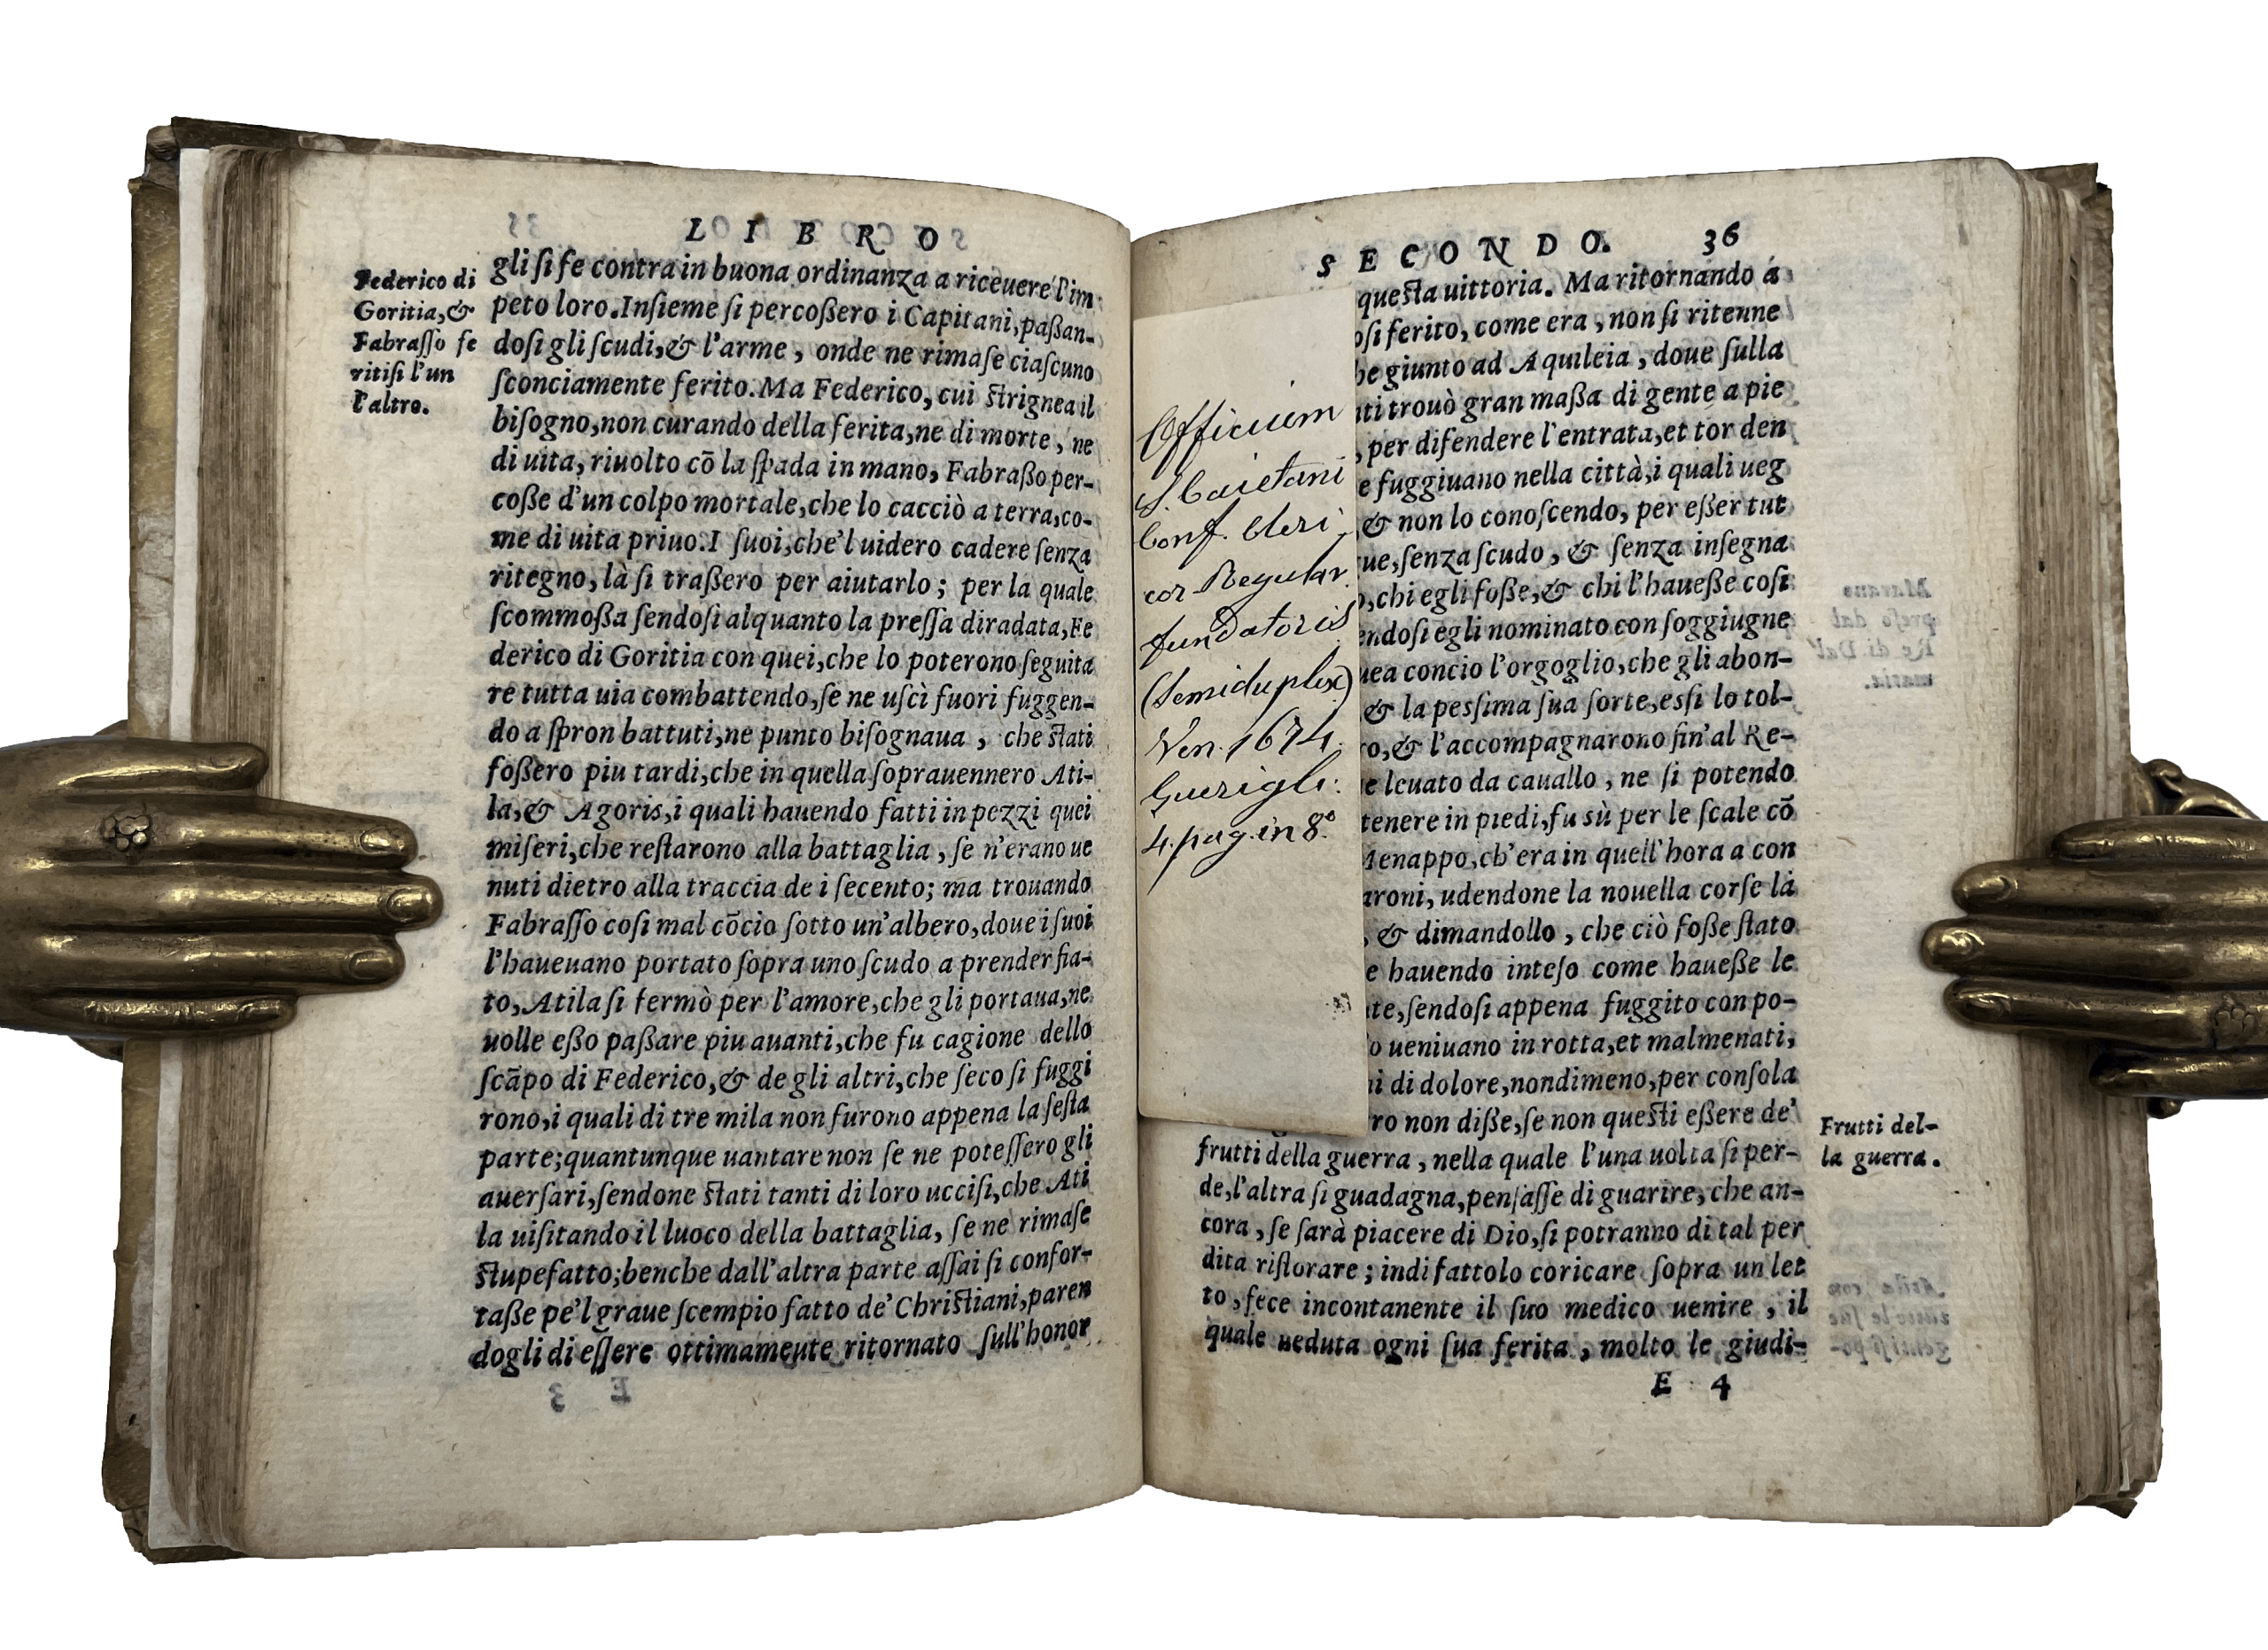 LIBRO
Federico di
Goritia,&
Fabraſſo fe
ritiſi l'un
l'altro.
gli ſi fe contra in buona ordinanza a riceuere l'im
peto loro. Inſieme ſi percoßero i Capitani, paßan-
doſi gli ſcudi,& l'arme, onde ne rimaſe ciaſcuno
ſconciamente ferito. Ma Federico, cui ſtrignea il
biſogno, non curando della ferita, ne di morte, ne
di uita, riuolto cō la ſpada in mano, Fabraßo per-
coße d'un colpo mortale, che lo cacciò a terra, co-
me di uita priuo. I ſuoi, che'l uidero cadere ſenza
ritegno, là ſi traßero per aiutarlo; per la quale
ſcommoßa ſendoſi alquanto la preſſa diradata, Fe
derico di Goritia con quei, che lo poterono ſeguita
re tutta uia combattendo, ſe ne uſcì fuori fuggen-
do a ſpron battuti, ne punto biſognaua, che ſtati
foßero piu tardi, che in quella ſoprauennero Ati-
la,& Agoris, i quali hauendo fatti in pezzi quei
miſeri, che reſtarono alla battaglia, ſe n'erano ue
nuti dietro alla traccia de i ſecento; ma trouando
Fabraſſo coſi mal cōcio ſotto un'albero, doue i ſuoi
l'haueuano portato ſopra uno ſcudo a prender fia-
to, Atila ſi fermò per l'amore, che gli portaua, ne
uolle eßo paßare piu auanti, che fu cagione dello
ſcāpo di Federico,& de gli altri, che ſeco ſi fuggi
rono, i quali di tre mila non furono appena la ſeſta
parte; quantunque uantare non ſe ne poteſſero gli
auerſari, ſendone ſtati tanti di loro ucciſi, che Ati
la uiſitando il luoco della battaglia, ſe ne rimaſe
ſtupefatto; benche dall'altra parte aſſai ſi confor-
taße pe'l graue ſcempio fatto de' Chriſtiani, paren
dogli di eſſere ottimamente ritornato ſull'honor
SECONDO. 36
queſta uittoria. Ma ritornando a
oſi ferito, come era, non ſi ritenne
he giunto ad Aquileia, doue ſulla
nti trouò gran maßa di gente a pie
, per difendere l'entrata, et tor den
e fuggiuano nella città, i quali ueg
,& non lo conoſcendo, per eßer tut
ue, ſenza ſcudo, & ſenza inſegna
o, chi egli foße,& chi l'haueße coſi
endoſi egli nominato con ſoggiugne
uea concio l'orgoglio, che gli abon-
& la peſsima ſua ſorte, eſsi lo tol-
ro,& l'accompagnarono fin'al Re-
e leuato da cauallo, ne ſi potendo
tenere in piedi, fu sù per le ſcale cō
Menappo, ch'era in quell'hora a con
aroni, udendone la nouella corſe là
, & dimandollo, che ciò foße ſtato
e hauendo inteſo come haueße le
te, ſendoſi appena fuggito con po-
o ueniuano in rotta, et malmenati,
i di dolore, nondimeno, per conſola
ro non diße, ſe non queſti eßere de'
frutti della guerra, nella quale l'una uolta ſi per-
de, l'altra ſi guadagna, penſaſſe di guarire, che an-
cora, ſe ſarà piacere di Dio, ſi potranno di tal per
dita riſtorare; indi fattolo coricare ſopra un let
to, fece incontanente il ſuo medico uenire, il
quale ueduta ogni ſua ferita, molto le giudi-
E 4
Frutti del-
la guerra.
Officium
S. Caietani
Conf. Cleri-
cor Regular.
fundatoris
(Semiduplex)
Ven. 1674.
Guerigli.
4. pag. in 8°.